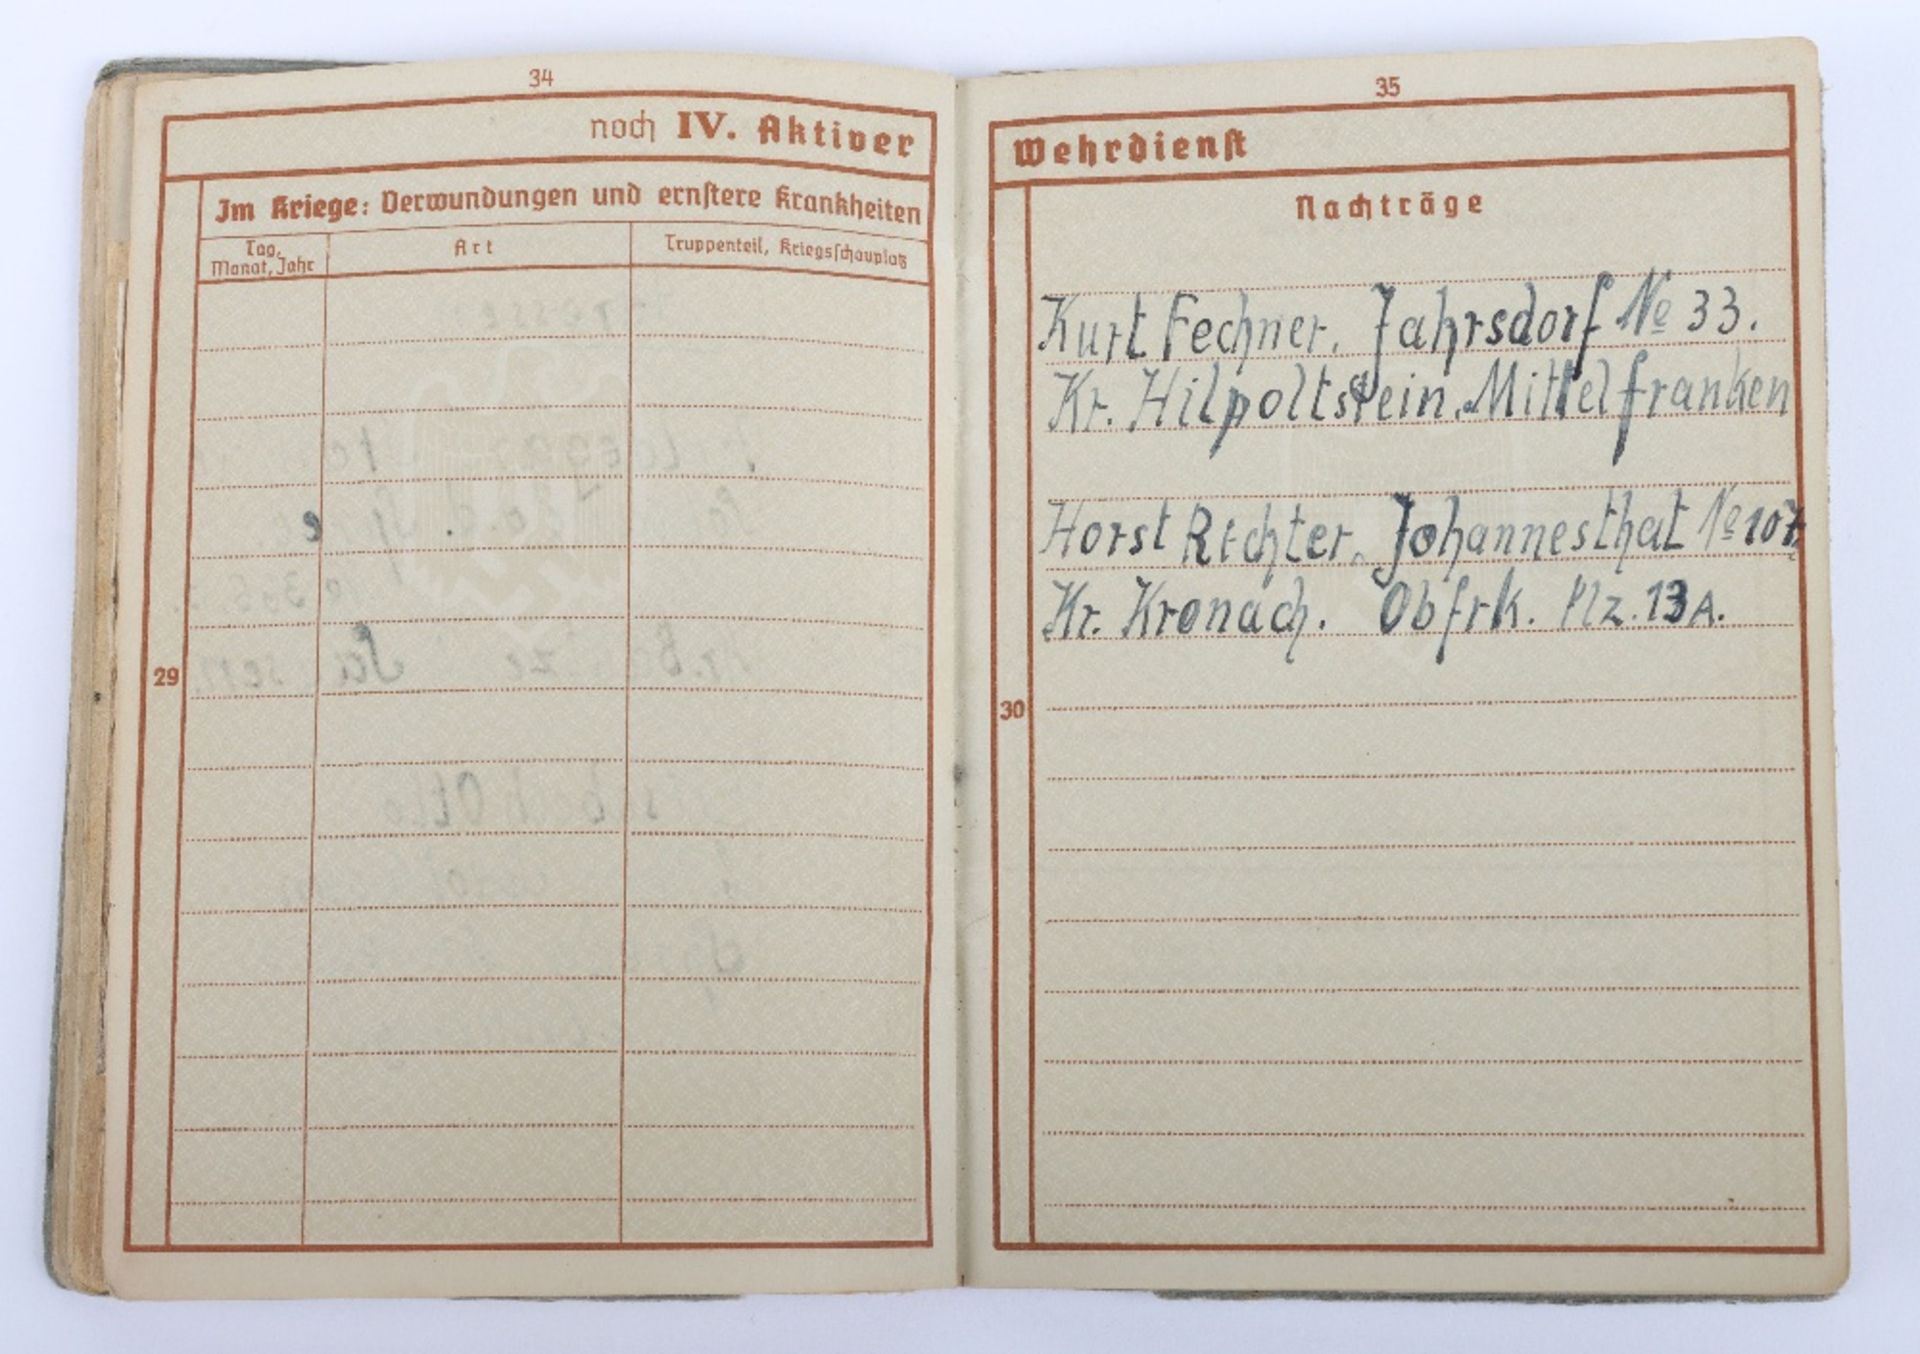 34
noch IV. Aktiver
Im Kriege: Verwundungen und ernstere Krankheiten
Tag, Monat, Jahr
Art
Truppenteil, Kriegsschauplatz
29
35
Wehrdienst
Nachträge
Kurt Fechner. Jahrsdorf No 33.
Kr. Hilpoltstein. Mittelfranken
Horst Richter. Johannesthal No 107
Kr. Kronach. Obfrk. Plz. 13A.
30